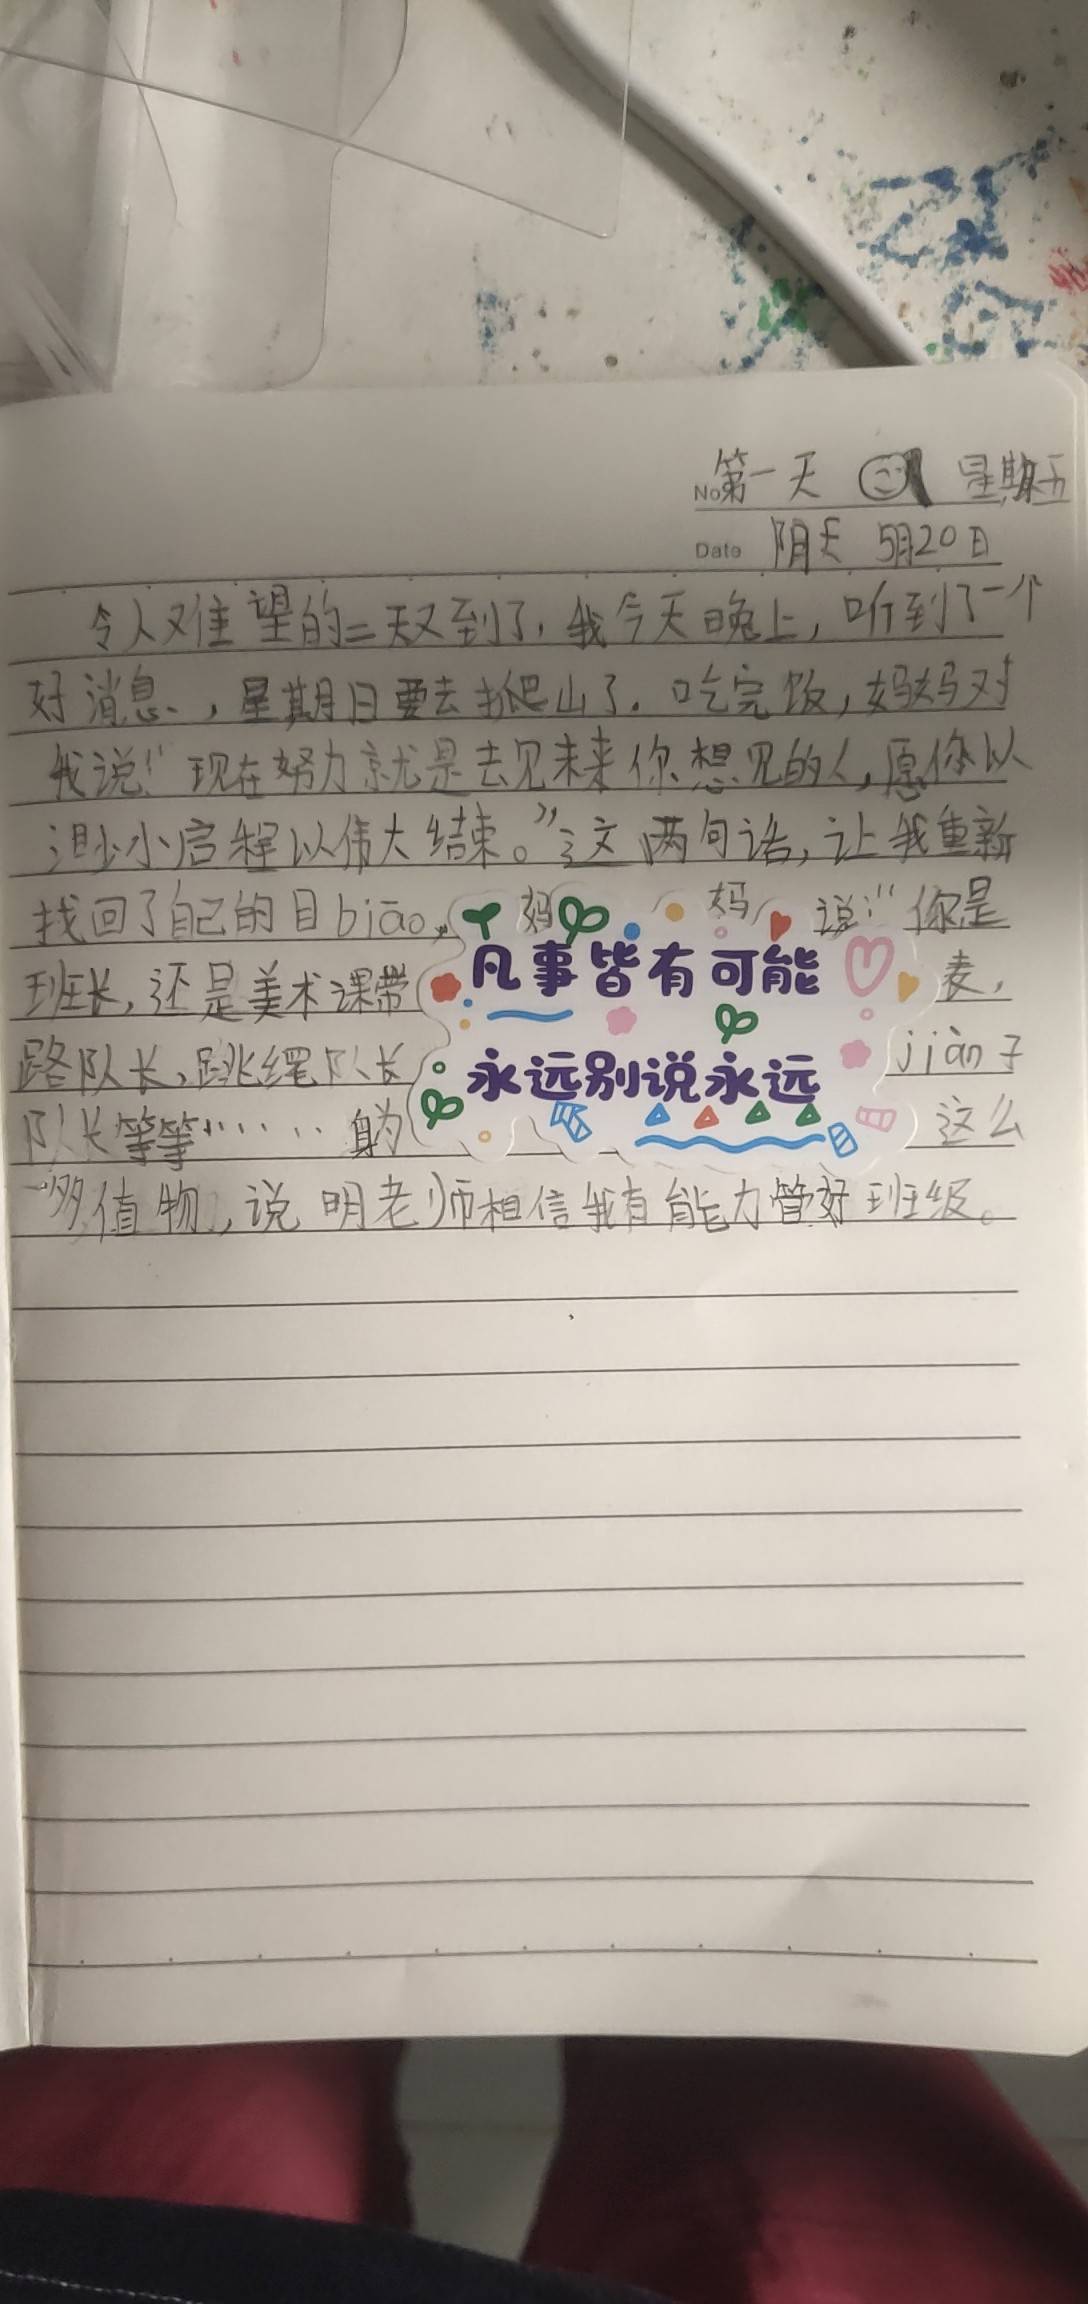 No 第一天 星期五
Date 阴天 5月20日
令人又难望的二天又到了，我今天晚上，听到了一个
好消息、，星期日要去爬山了。吃完饭，妈妈对
我说：“现在努力就是去见未来你想见的人，愿你以
渺小启程以伟大结束。”这两句话，让我重新
找回了自己的目biāo。妈妈说：“你是
班长，还是美术课带表，
路队长、跳绳队长jiàn子
队长等等……身为这么
多值物，说明老师相信我有能力管好班级。
凡事皆有可能
永远别说永远